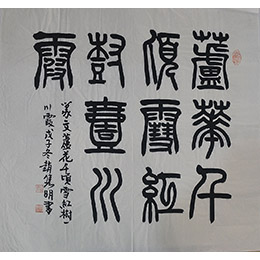 蘆華千
頃雪紅
樹一川
霞
釋文蘆花千頃雪紅樹一
川霞戊子冬趙雋明書